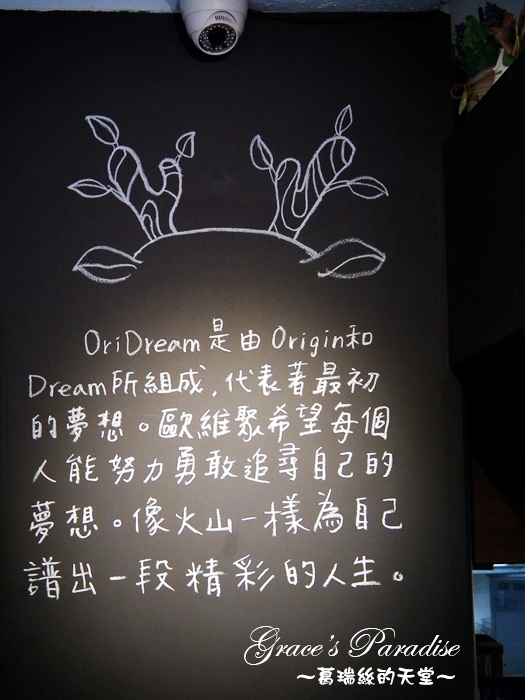 OriDream是由Origin和
Dream所組成，代表著最初
的夢想。歐維聚希望每個
人能努力勇敢追尋自己的
夢想。像火山一樣為自己
譜出一段精彩的人生。
Grace's Paradise
～葛瑞絲的天堂～